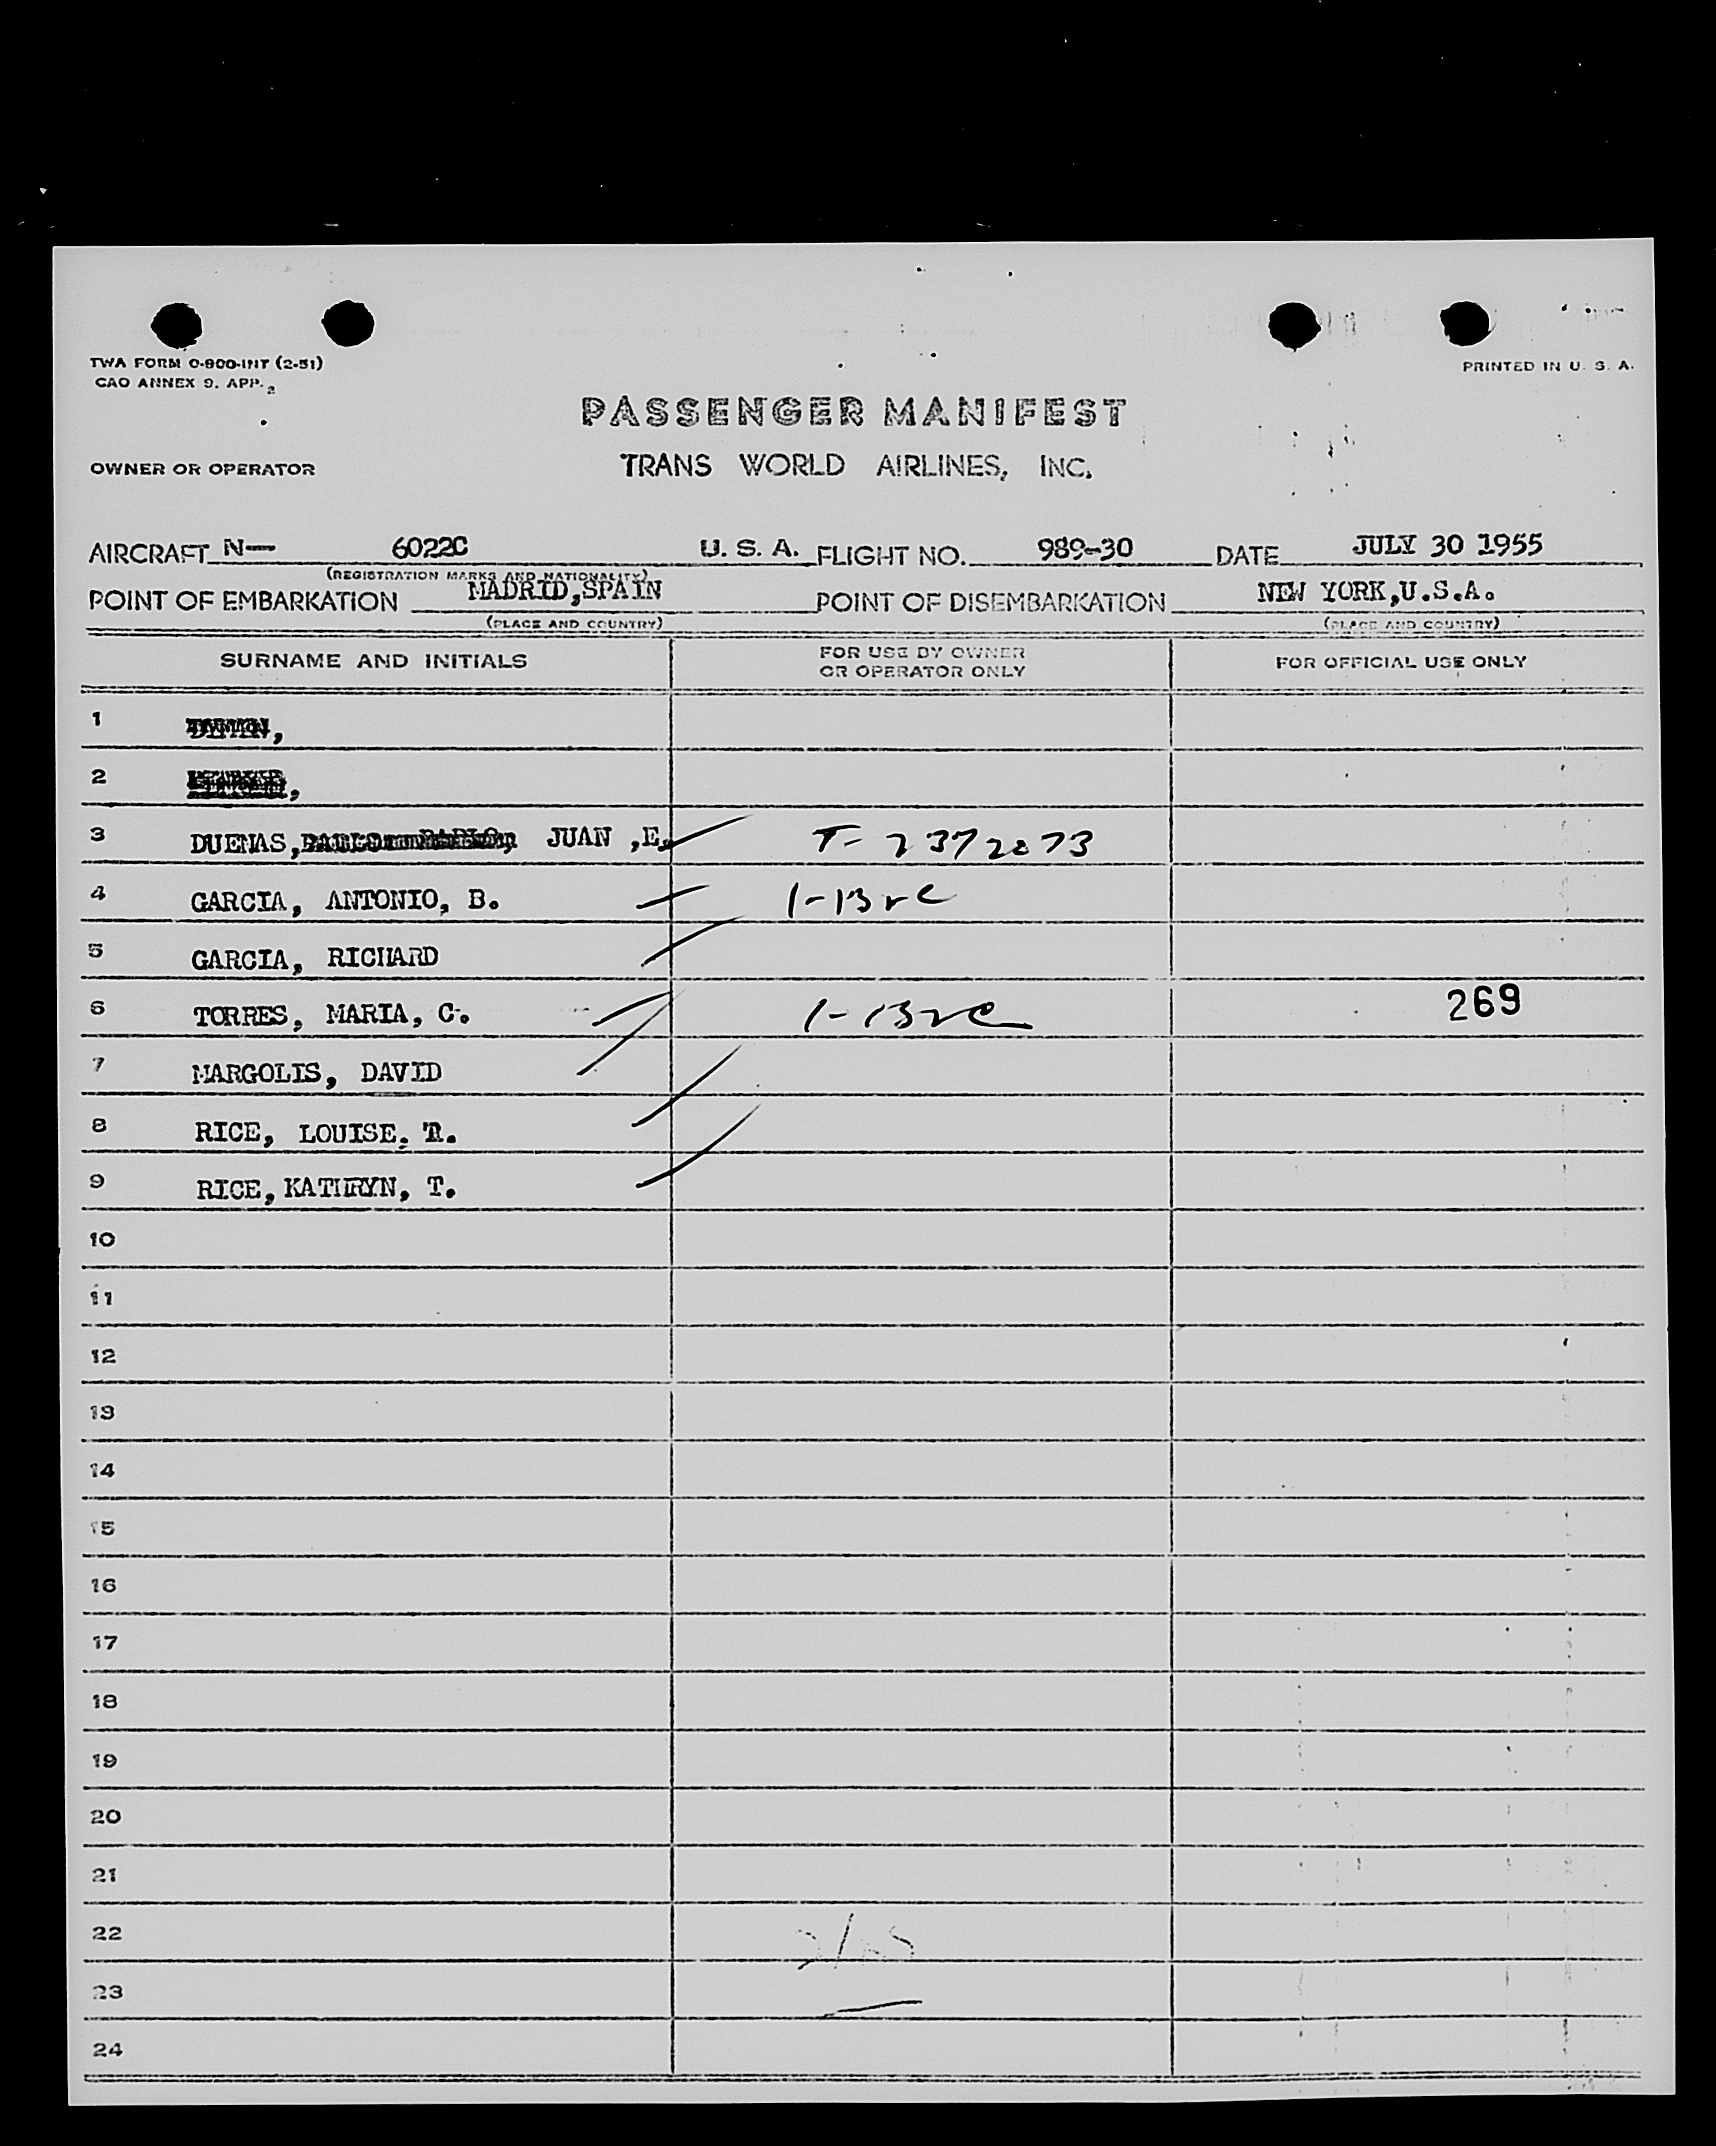 TWA FORM 0-800-INT (2-51)
CAO ANNEX 9. APP. 2
PRINTED IN U. S. A.
PASSENGER MANIFEST
OWNER OR OPERATOR
TRANS WORLD AIRLINES, INC.
AIRCRAFT N— 6022C U. S. A. FLIGHT NO. 989-30 DATE JULY 30 1955
(REGISTRATION MARKS AND NATIONALITY)
POINT OF EMBARKATION MADRID,SPAIN POINT OF DISEMBARKATION NEW YORK,U.S.A.
(PLACE AND COUNTRY) (PLACE AND COUNTRY)
SURNAME AND INITIALS FOR USE BY OWNER OR OPERATOR ONLY FOR OFFICIAL USE ONLY
1
2
3 DUENAS, JUAN ,E. T- 2372073
4 GARCIA, ANTONIO, B.
5 GARCIA, RICHARD
6 TORRES, MARIA, C. 269
7 MARGOLIS, DAVID
8 RICE, LOUISE.
9 RICE, KATHRYN, T.
10
11
12
13
14
15
16
17
18
19
20
21
22
23
24